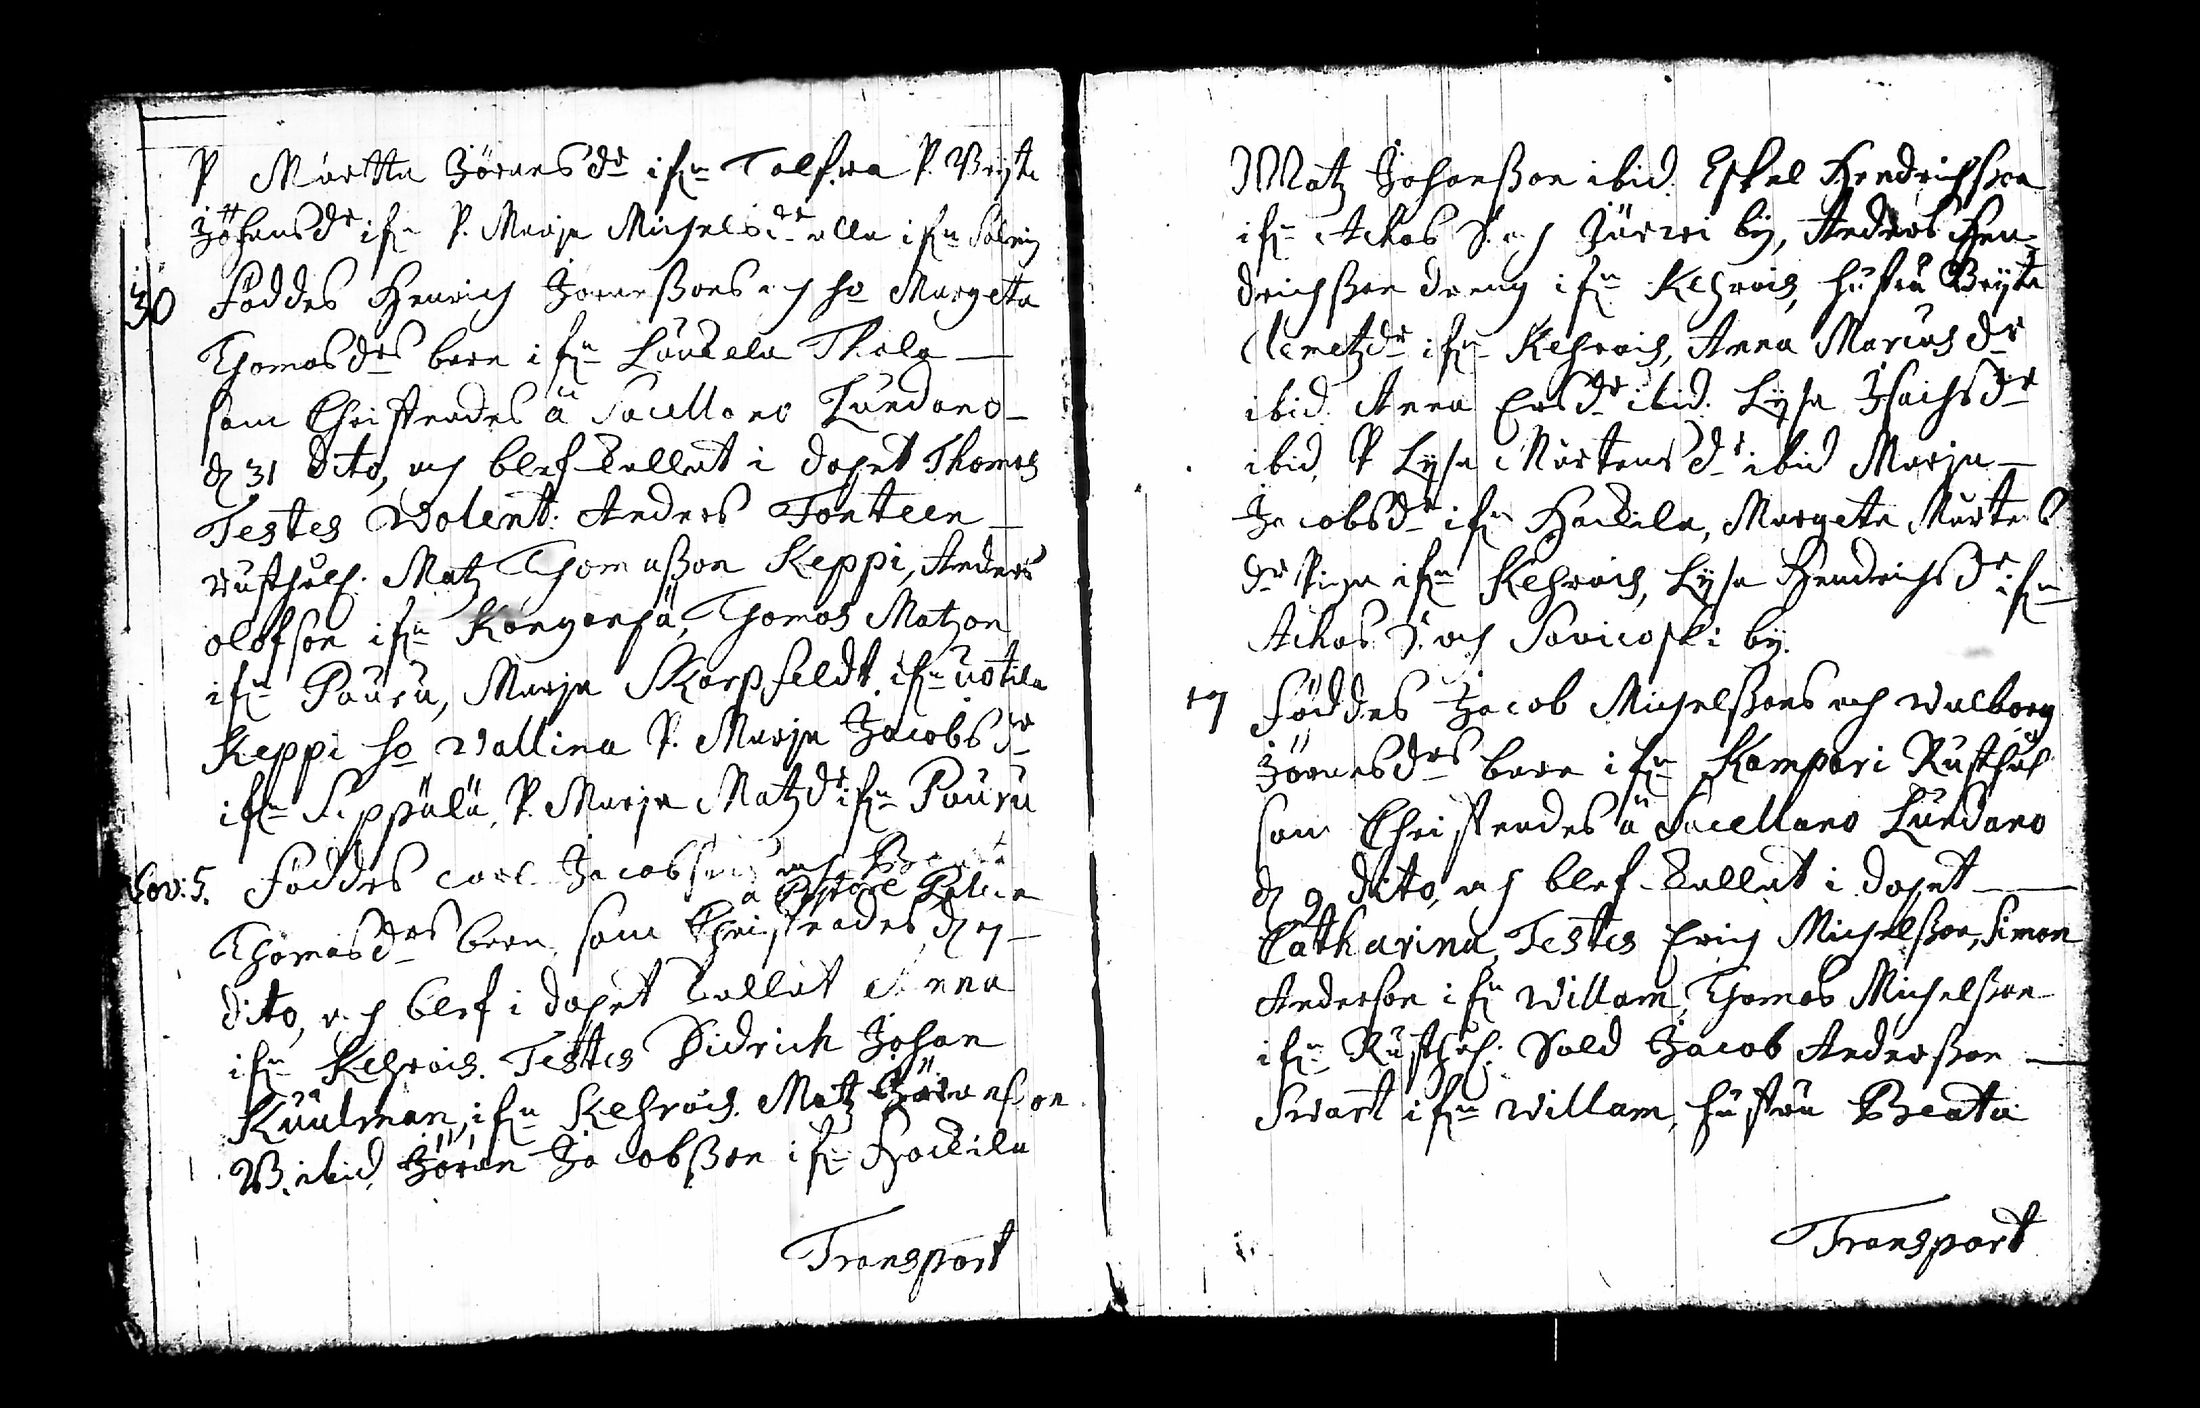 P. Martta Jörans dr ifrn Talfwa P. Bryta
Johans dr ifrn P. Marja Michels dr alla ifrn
30 Föddes Henrich Jöranßons och ho Margeta
Thomas drs barn ifrn Laukela Thalo
som Christnades â Sacellano Lundano
d 31 dito, och blef kallat i dopet Thomas
Testes Volent: Anders Fonteen
rusthåls: Matz Thomaßon Keppi, Anders
olofson ifrn Kangarpä, Thomas Matzon
ifrn Pauru, Marja Skarpfeldt ifrn uotila
Keppi ho Wallina P. Marja Jacobs dr
ifrn Seppälä, P. Marja Matz dr ifrn Pauru
Nov: 5. Föddes Carl Jacobsons och
â Pastore
Thomas drs barn, som Christnades d 7
dito, och blef i dopet kallat Anna
ifrn Kehrois. Testes Didrich Johan
Kuulman, ifrn Kehrois. Matz Jöranson
B. ibid. Jöran Jacobßon ifrn Hackila
Transport
Matz Johanßon ibid. Eskel Hendrichßon
ifrn Achas S. och Järwi by, Anders Hen-
drichßon dreng ifrn Kehrois, hustru Bryta
Clemetz dr ifrn Kehrois, Anna Marcus dr
ibid. Anna Ers dr ibid. Lysa Isachs dr
ibid. P Lysa Mårtens dr ibid Marja
Jacobs dr ifrn Hackila, Margeta Mårtens
dr Piga ifrn Kehrois, Lysa Hendrichs dr ifrn
Achas S. och Savicoski by.
7 Föddes Jacob Michelßons och Walborg
Jörans drs barn ifrn Kampari Rusthål
som Christnades â Sacellano Lundano
d 9 dito, och blef kallat i dopet
Catharina, Testes Erich Michelßon, Simon
Anderson ifrn Willam, Thomas Michelßon
ifrn Rusthål: Sold Jacob Anderßon
Swart ifrn Willam, hustru Beata
Transport